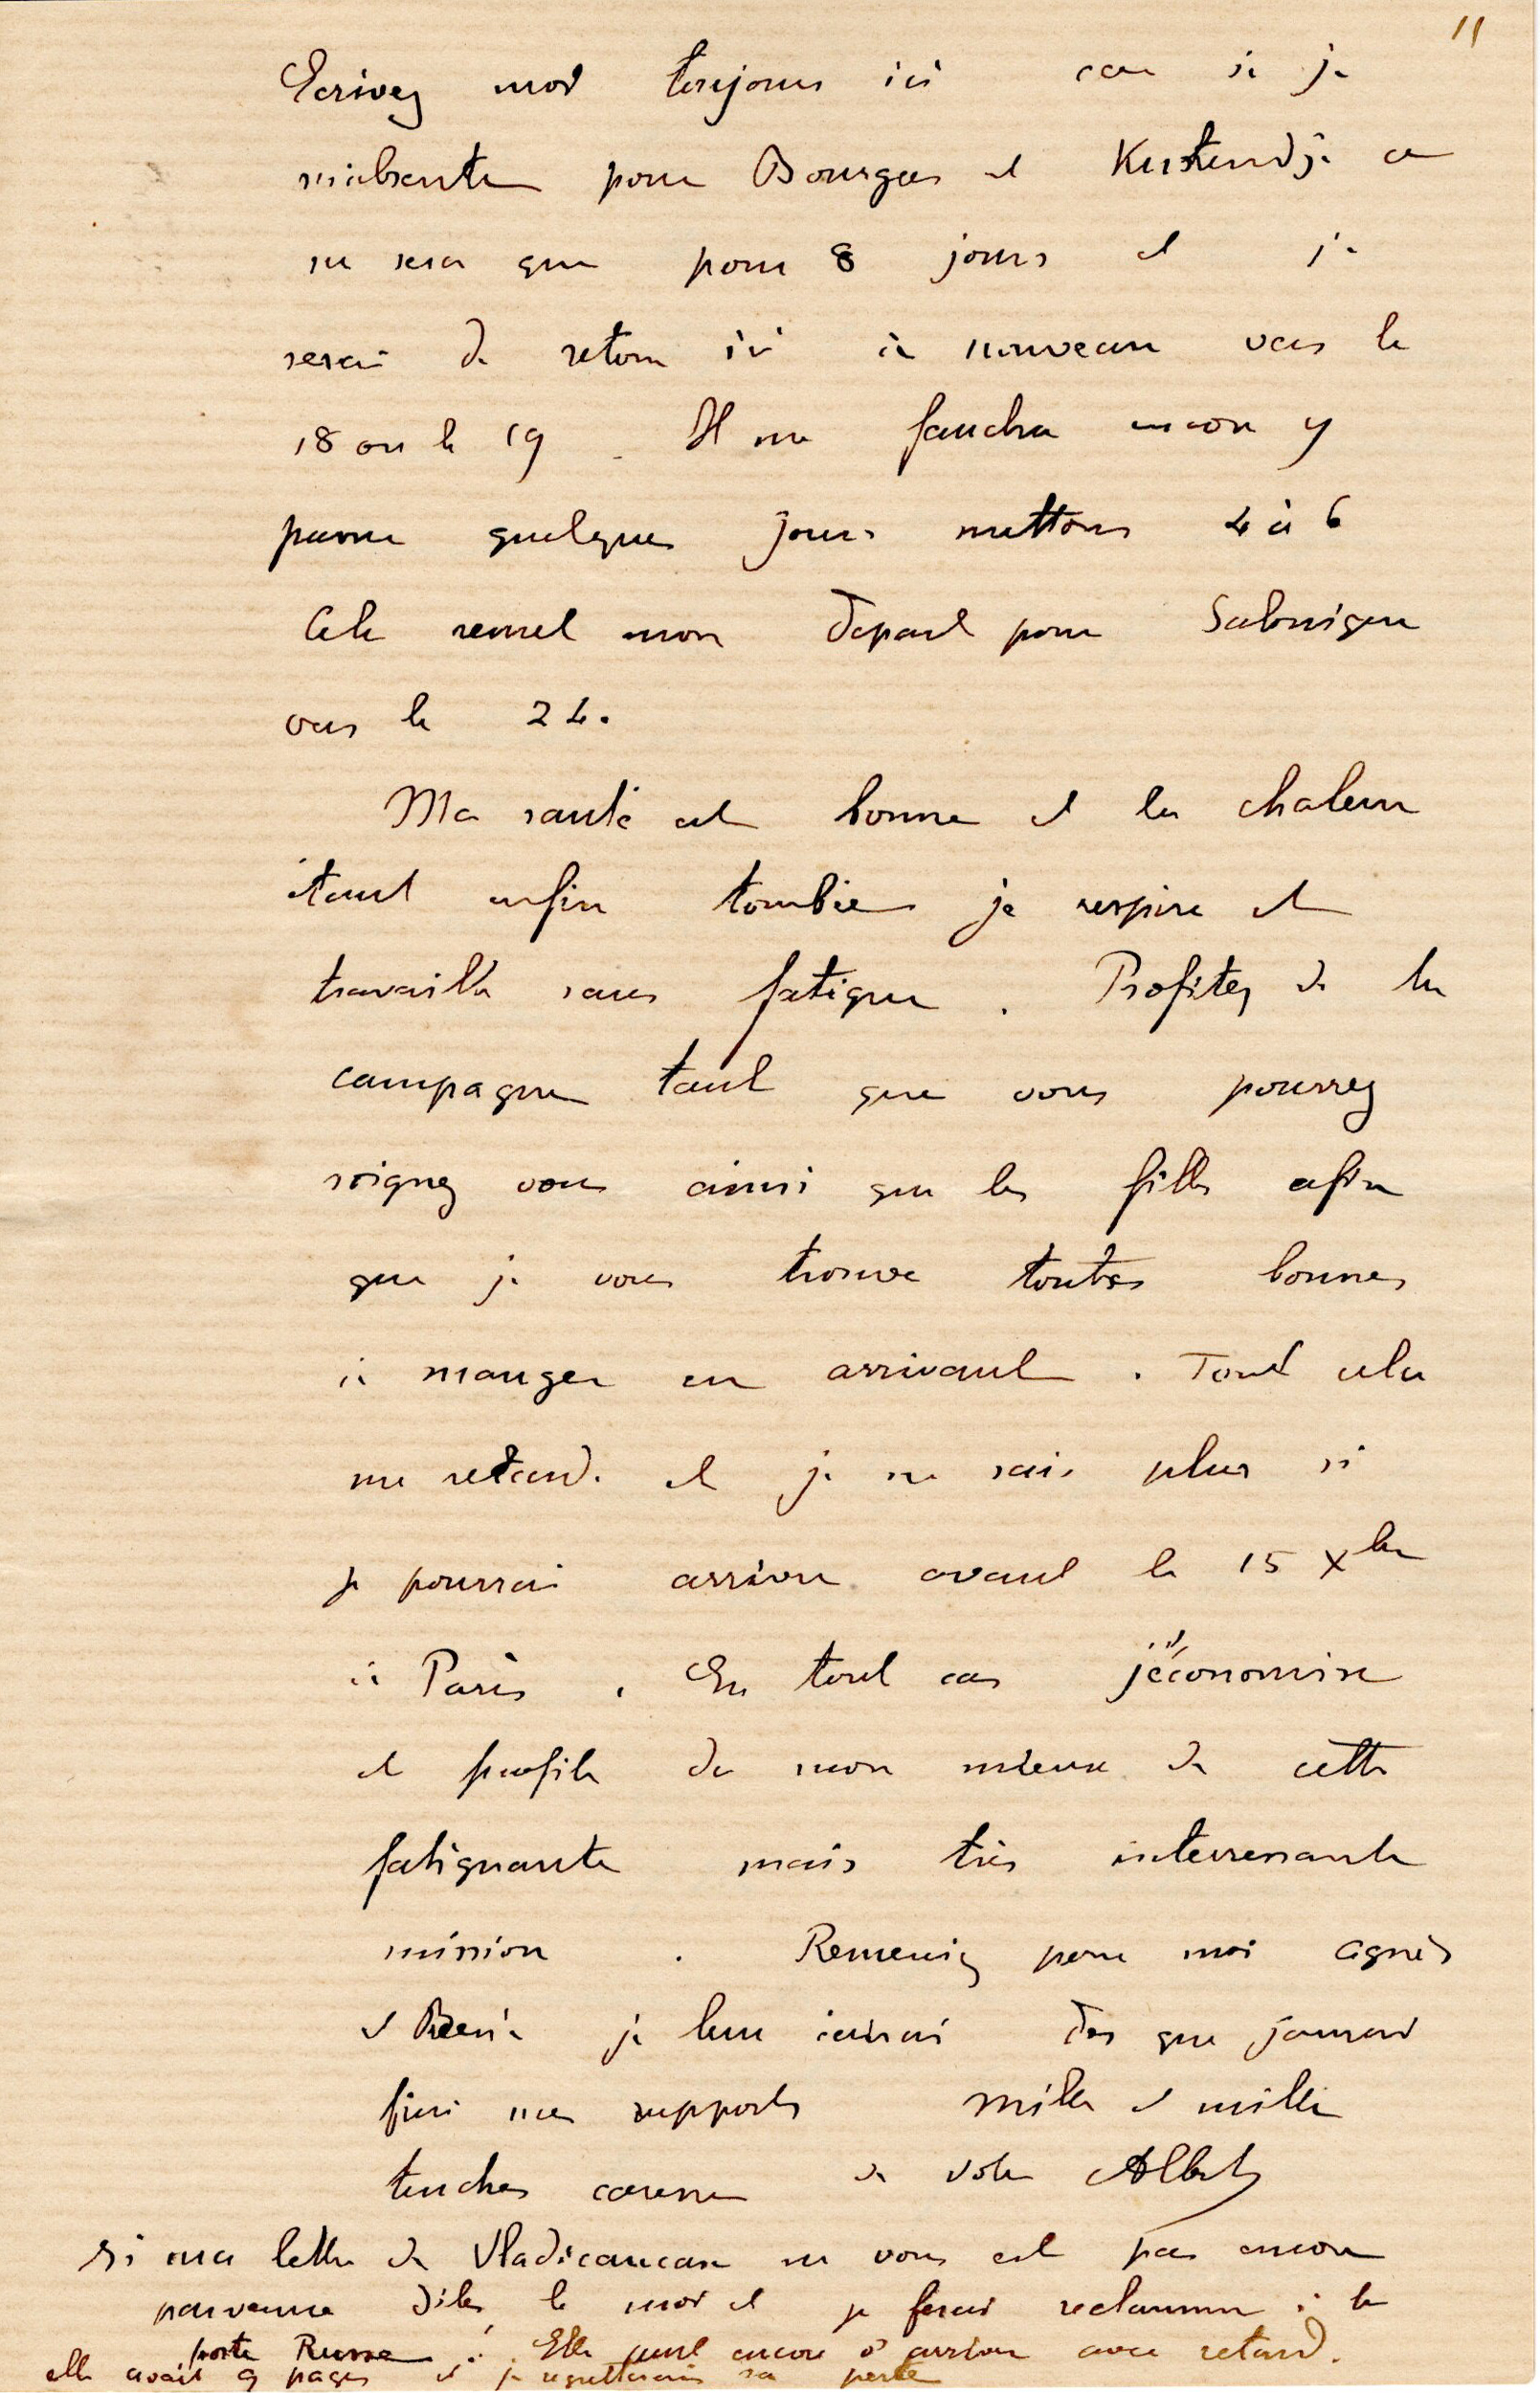 11
Ecrivez moi toujours ici car si je
m'absente pour Bourgas et Kustendje ce
ne sera que pour 8 jours et je
serai de retour ici à nouveau vers le
18 ou le 19. Il me faudra encore y
passer quelques jours mettons 4 à 6
Cela remet mon depart pour Salonique
vers le 24.
Ma santé est bonne et la chaleur
étant enfin tombée je respire et
travaille sans fatigue. Profitez de la
campagne tant que vous pourrez
soignez vous ainsi que les filles afin
que je vous trouve toutes bonnes
à manger en arrivant. Tout cela
me retarde et je ne sais plus si
je pourrai arriver avant le 15 Xbre
à Paris. En tout cas j'économise
et profite de mon mieux de cette
fatiguante mais très interressante
mission. Remerciez pour moi Agnès
et je leur écrirai des que jaurai
fini mes rapports mille et mille
tendres caresses de votre Albert
Si ma lettre de Vladicaucase ne vous est pas encore
parvenue dites le moi et je ferai reclamer à la
poste Russe. Elle peut encore arriver avec retard.
elle avait 9 pages et je regretterais sa perte